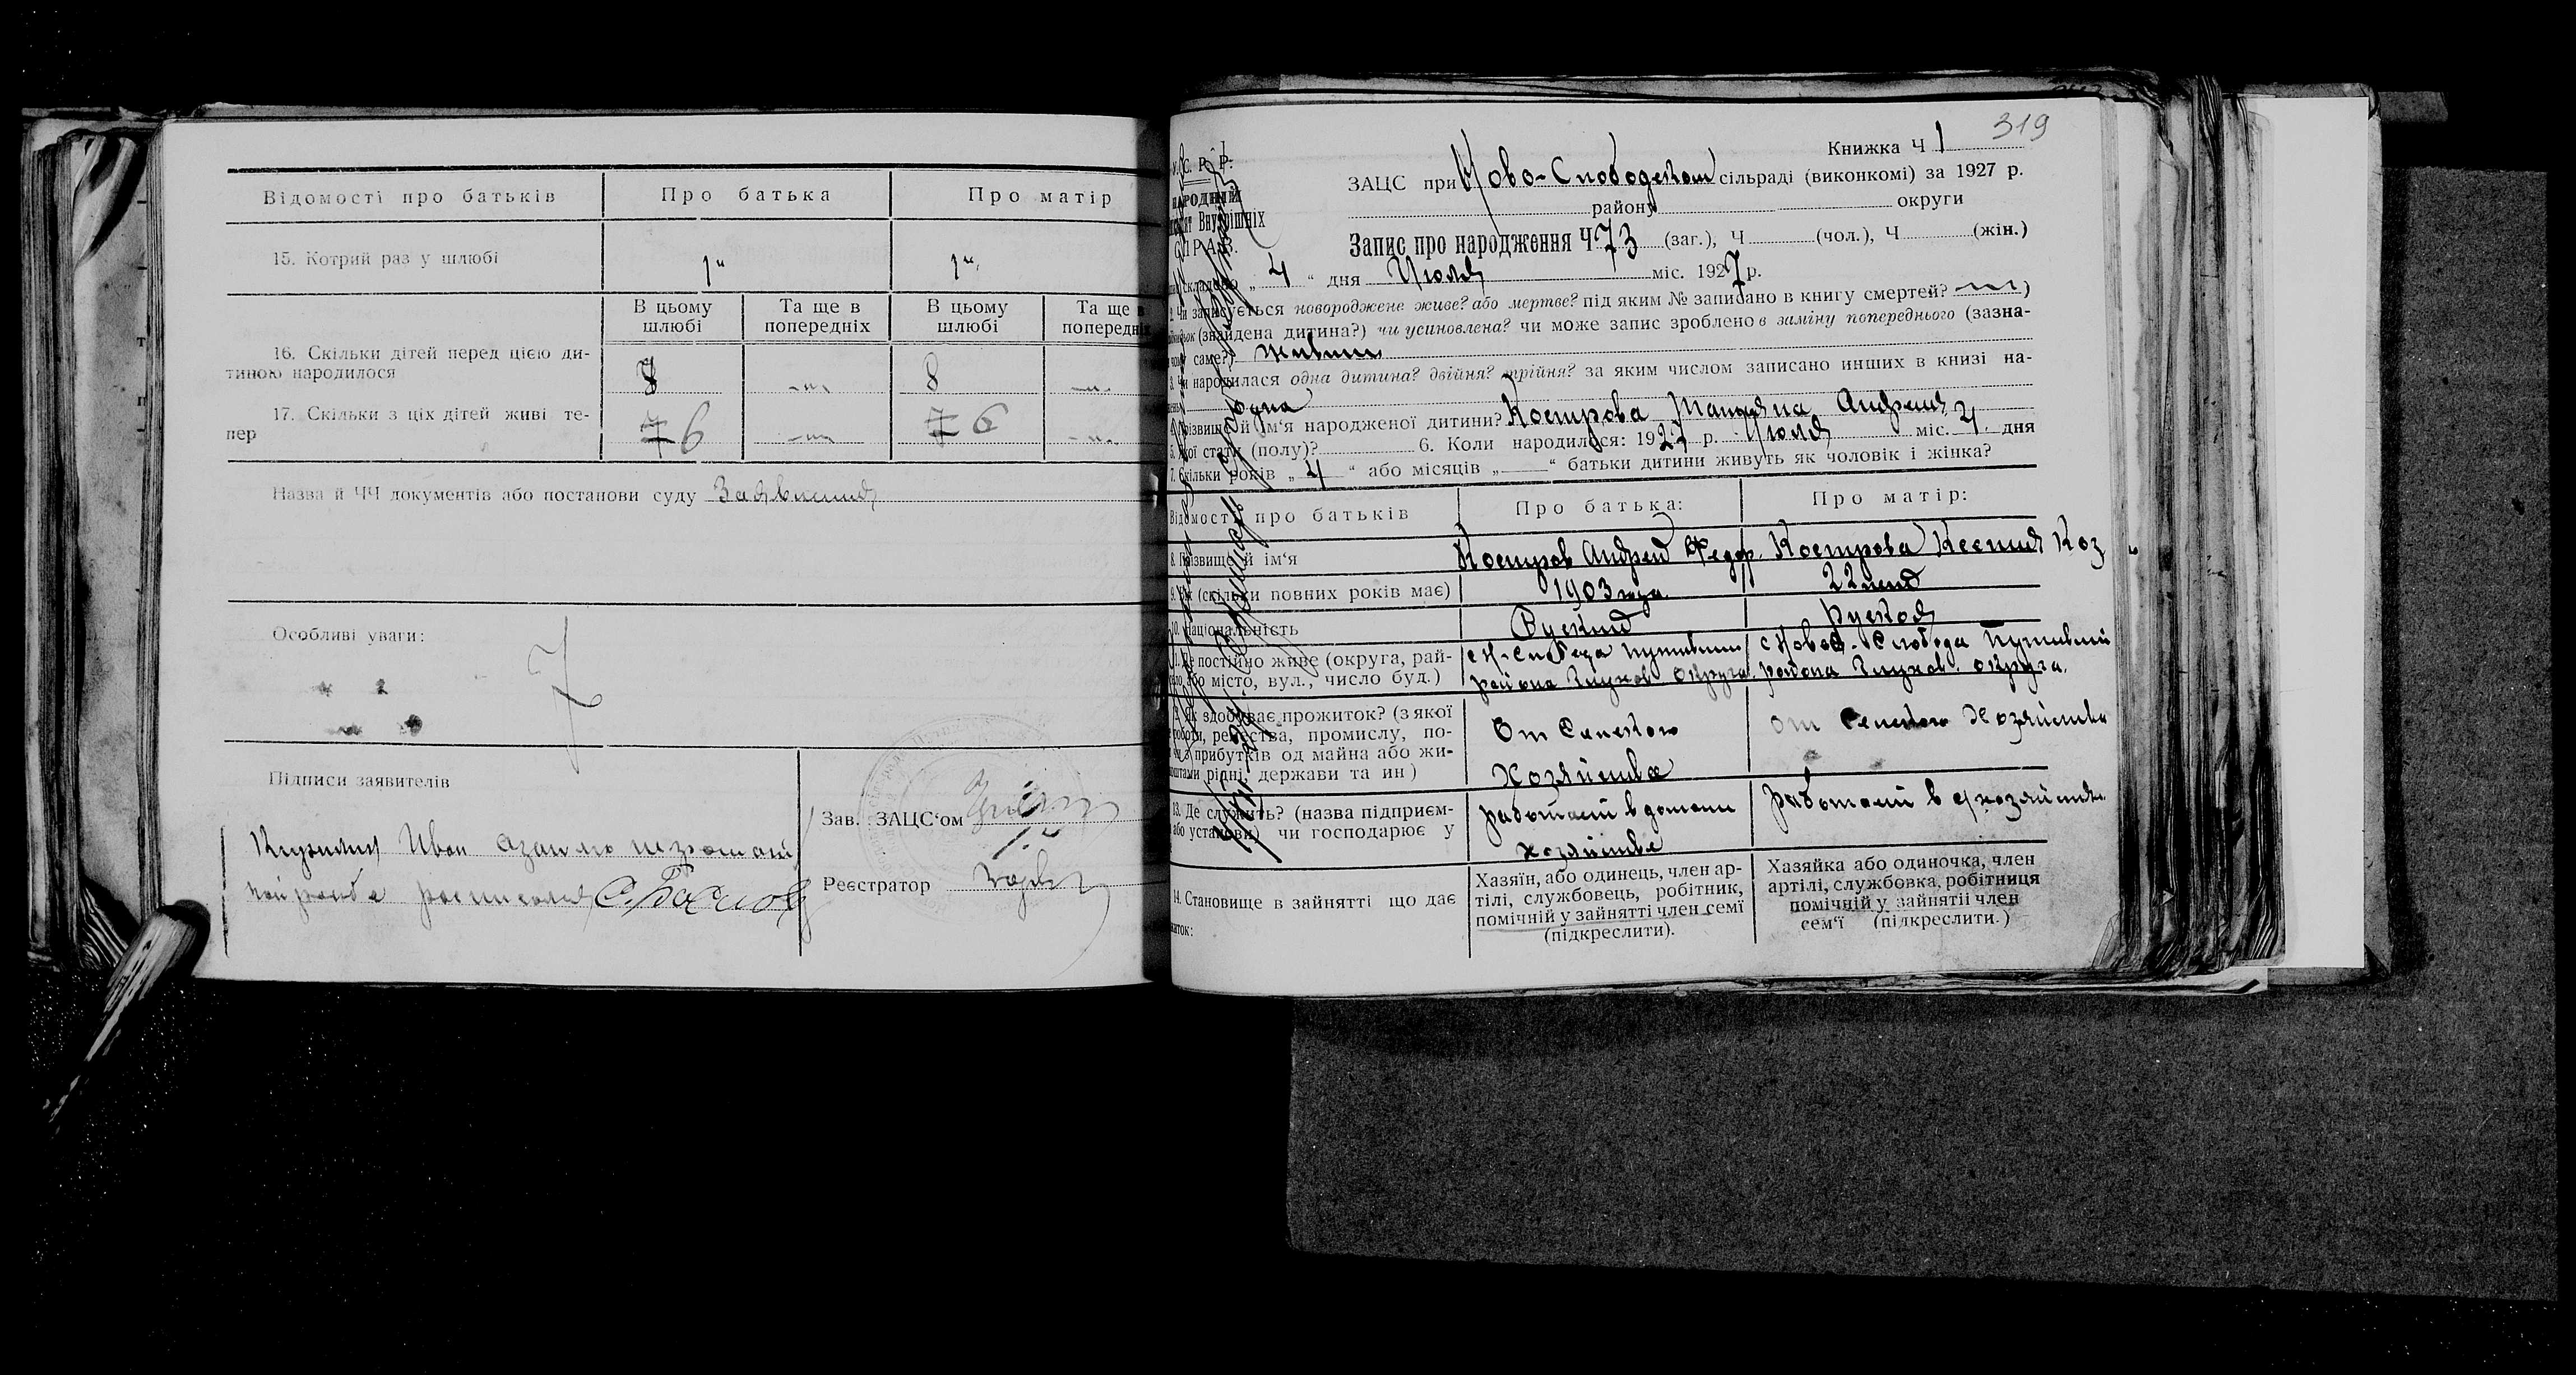 Відомості про батьків
Про батька
Про матір
15. Котрий раз у шлюбі
1й
1й
В цьому шлюбі
Та ще в попередніх
В цьому шлюбі
Та ще в попередніх
16. Скільки дітей перед цією ди-
тиною народилося
8
8
17. Скільки з ціх дітей живі те-
пер
7 6
7 6
Назва й ЧЧ документів або постанови суду Заявления
Особливі уваги:
7
Підписи заявителів
Зав. ЗАЦС‘ом
Иван
Реєстратор
319
Книжка Ч 1
С. Р. Р.
ЗАЦС при Ново-Слободском сільраді (виконкомі) за 1927 р.
району округи
Внутрішніх
СПРАВ.
Запис про народження Ч 73 (заг.), Ч (чол.), Ч (жін.)
складено „ 4 “ дня Июля міс. 1927 р.
2. Чи записується новороджене живе? або мертве? під яким № записано в книгу смертей? )
(знайдена дитина?) чи усиновлена? чи може запис зроблено в заміну попереднього (зазна-
саме?)
3. Чи народилася одна дитина? двійня? трійня? за яким числом записано инших в книзі на-
одна
4. Прізвище й ім‘я народженої дитини? Кострова Татьяна Андреия
5. Якої статі (полу)? 6. Коли народилося: 1927 р. Июля міс. 4 дня
7. Скільки років „ 4 “ або місяців „ “ батьки дитини живуть як чоловік і жінка?
Відомості про батьків
Про батька:
Про матір:
8. Прізвище й ім‘я
Костров Андрей Федор.
Кострова Ксения Коз
9. Вік (скільки повних років має)
1903 года
22 лет
10. Національність
Руский
Руская
11. Де постійно живе (округа, рай-
або місто, вул., число буд.)
с Н-Слобода Путивльс
района Глухов. округа.
с Новая-Слобода Путивльс
района Глухов. округа.
12. Як здобуває прожиток? (з якої
роботи, ремества, промислу, по-
чи з прибутків од майна або жи-
рідні, держави та ин)
От Сельского
Хозяйства
От Сельского Хозяйства
13. Де служить? (назва підприєм-
або установи) чи господарює у
работает в домаш
хозяйстве
работает в с/хозяйстве
14. Становище в зайнятті що дає
Хазяїн, або одинець, член ар-
тілі, службовець, робітник,
помічній у зайнятті член семї
(підкреслити).
Хазяйка або одиночка, член
артілі, службовка, робітниця
помічній у зайняті член
сем‘ї (підкреслити.)